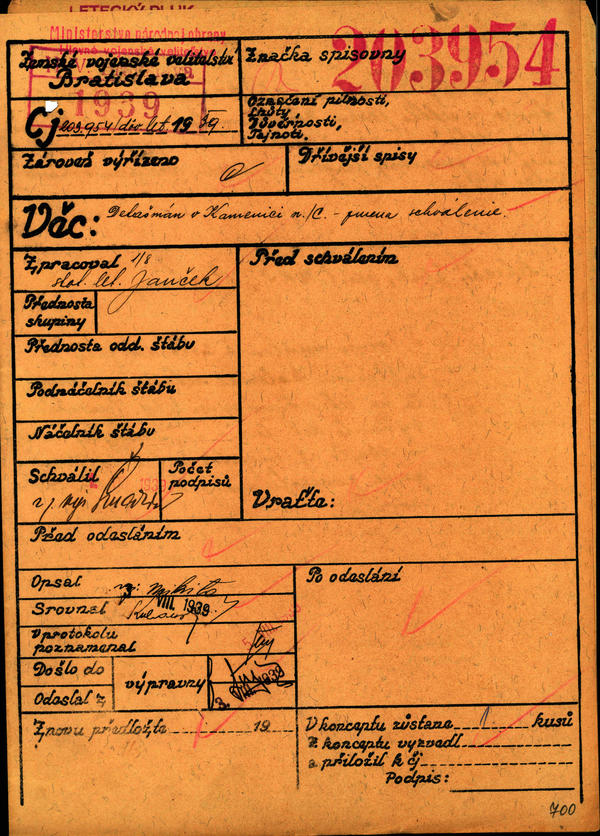 LETECKÝ PLUK
Ministerstvo národnej obrany
hlavné vojenské veliteľstvo
Zemské vojenské velitelství
Bratislava
1939
Značka spisovny
203954
Čj 203.954/dôv.let. 1939.
Označení pilnosti,
Lhůty,
Důvěrnosti,
Tajnosti,
Zároveň vyřízeno
Dřívější spisy
Věc: v Kamenici n./C. - schválenie.
Zpracoval 1/8
stot. let. Janček
Přednosta
skupiny
Přednosta odd. štábu
Podnáčelník štábu
Náčelník štábu
Schválil
1939
Počet
podpisů
Před schválením
Vraťte:
Před odesláním
Opsal
Srovnal
VIII. 1939
V protokolu
poznamenal
Došlo do
Odeslal z
výpravny
3. VIII. 1939
Po odeslání
Znovu předložte 19
V konceptu zůstane 1 kusů
Z konceptu vyzvedl
a přiložil k čj
Podpis:
700